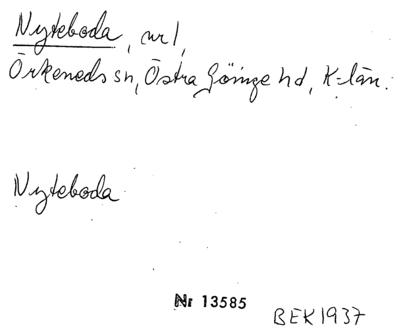 Nyteboda, nr 1,
Örkeneds sn, Östra Göinge hd, K-län.
Nyteboda
Nr 13585
BEK 1937